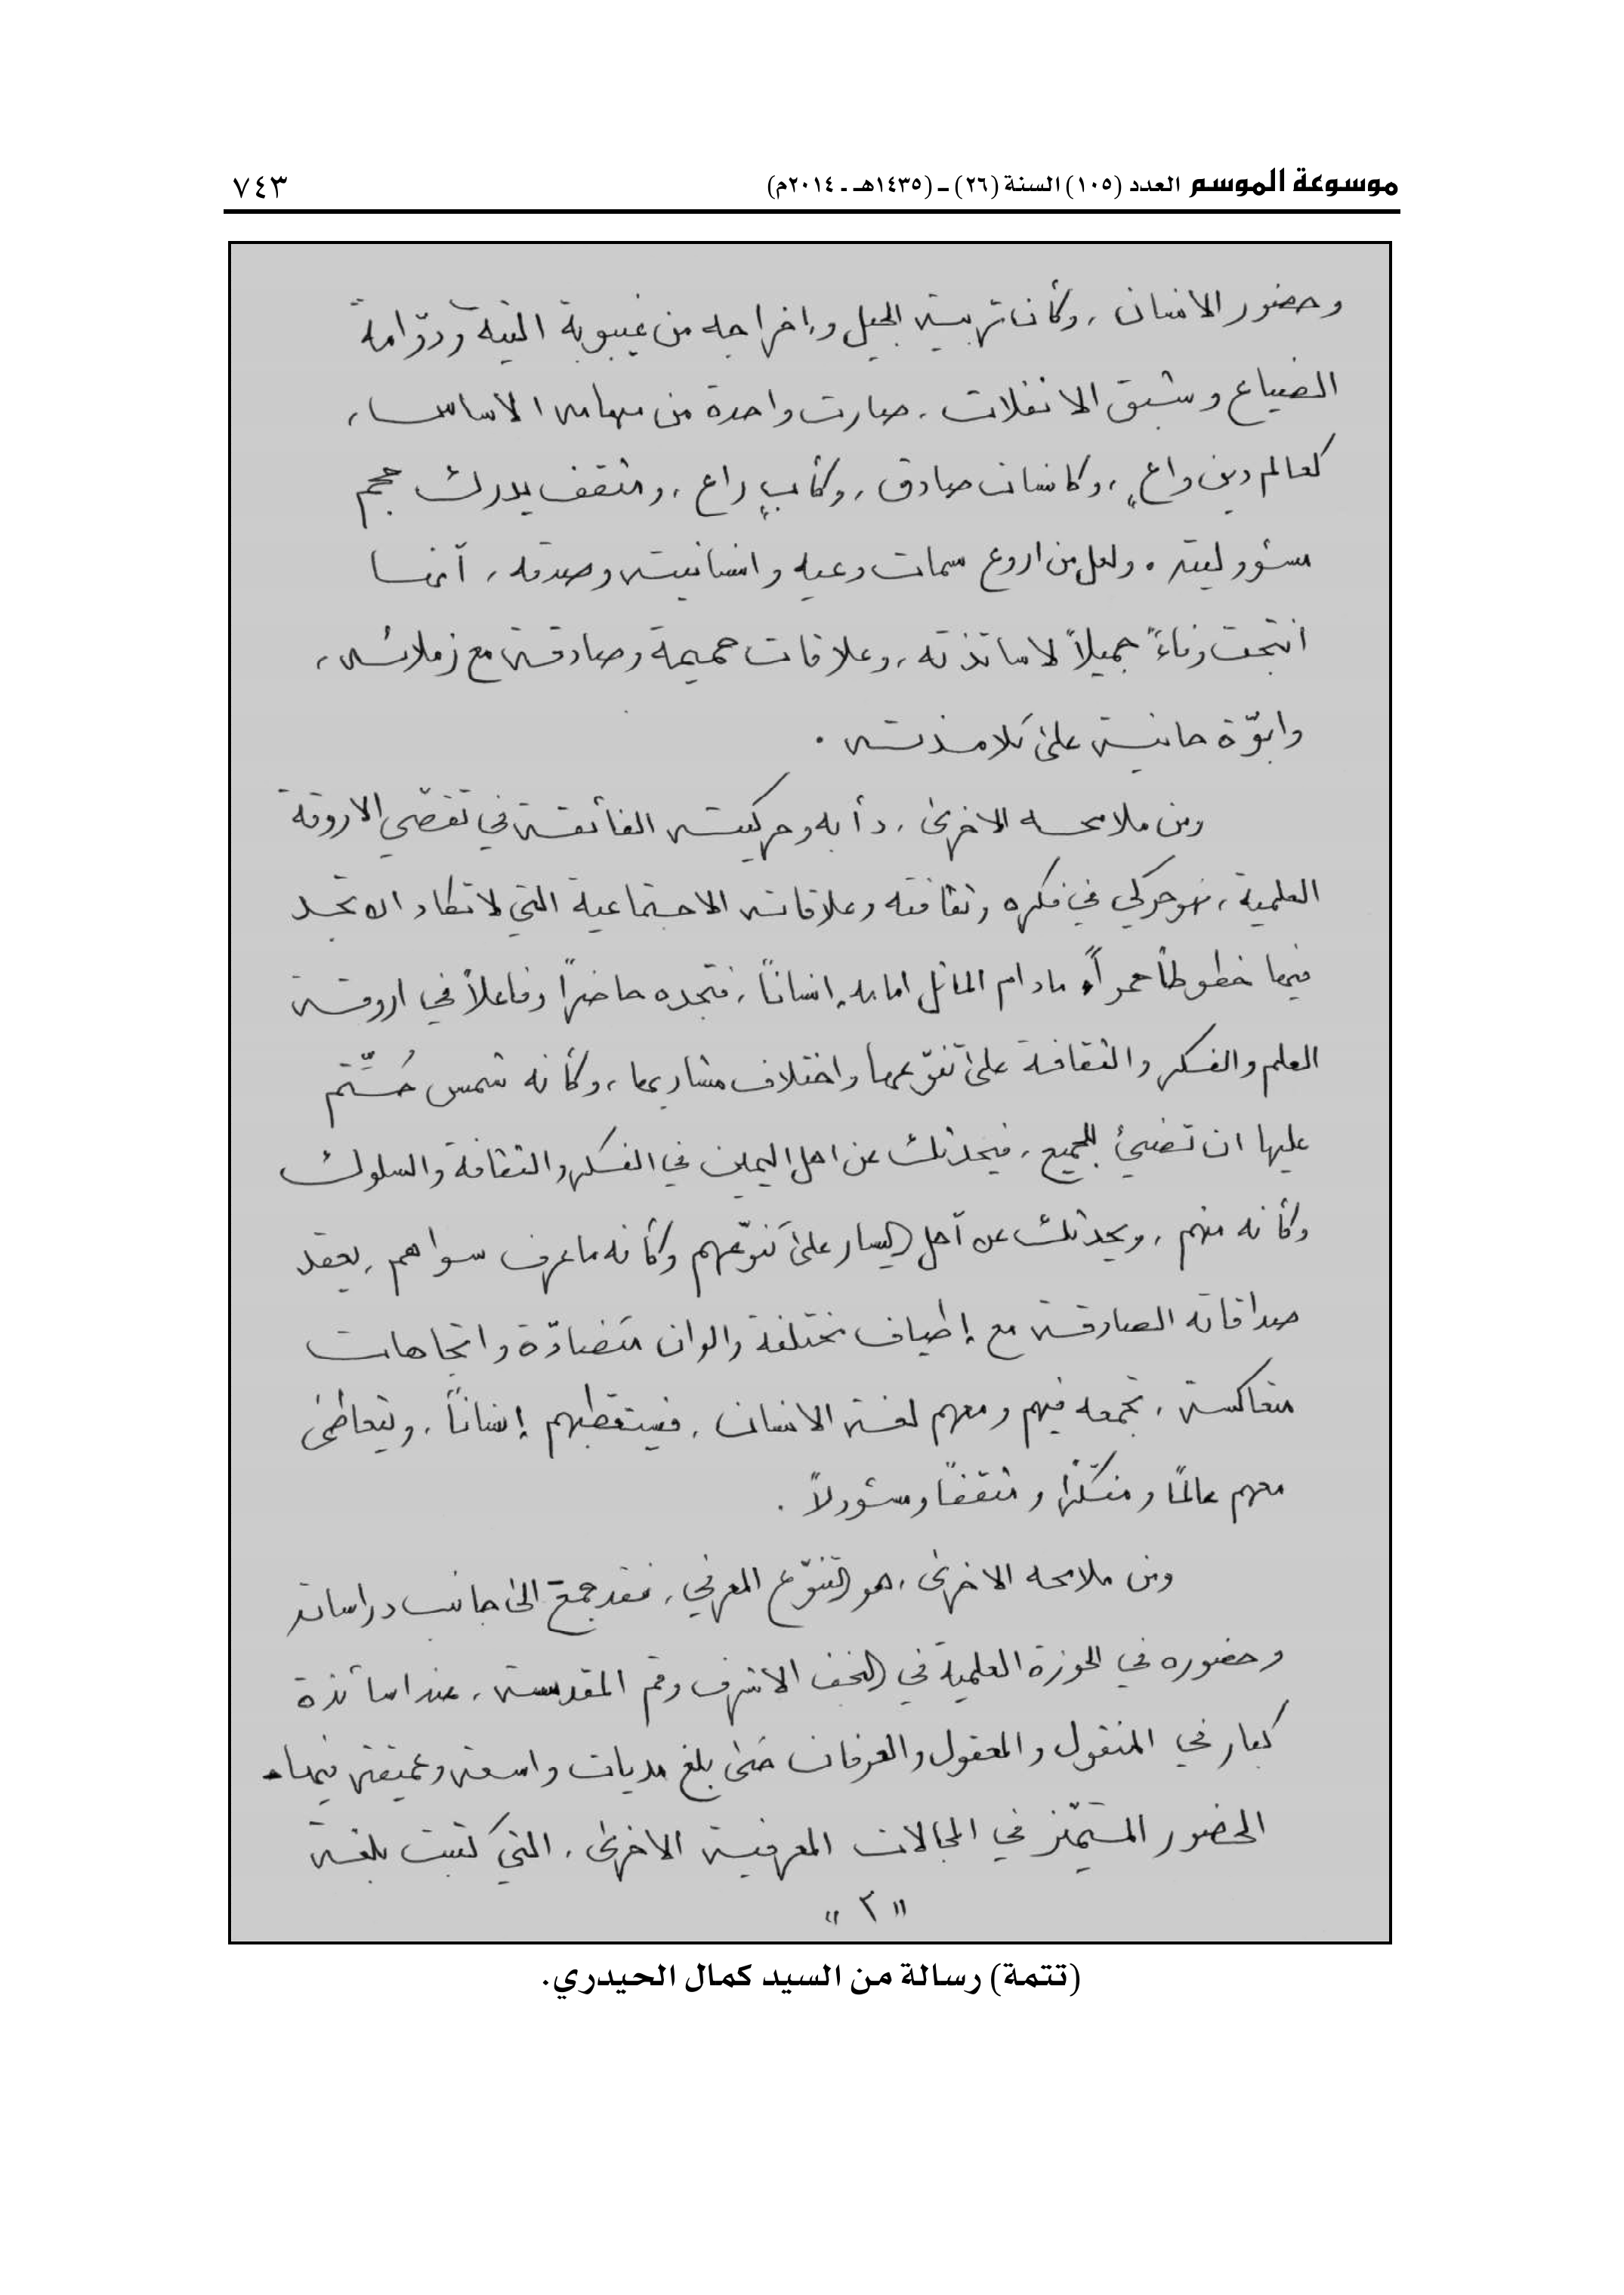 موسوعة الموسم العدد (١٠٥) السنة (٢٦) ـ (١٤٣٥هـ ـ ٢٠١٤م)
٧٤٣
وحضور الانسان، وكأن تربية الجيل وإخراجه من غيبوبة التيه ودوّامة
الضياع وشبق الانفلات، صارت واحدة من مهامه الاساسية،
كعالم دين واعٍ، وكانسان صادق، وكأبٍ راع، ومثقف يدرك حجم
مسئووليته. ولعل من اروع سمات وعيه وانسانيته وصدقه، أنها
انتجت وفاءً جميلاً لاساتذته، وعلاقات حميمة وصادقة مع زملائه،
وابوّة حانية على تلامذته.
ومن ملامحه الاخرى، دأبه وحركيته الفائقة في تقصّي الاروقة
العلمية، فهو حركي في فكره وثقافته وعلاقاته الاجتماعية التي لا تكاد ان تجد
فيها خطوطاً حمراً، ما دام الماثل امامه إنساناً، فتجده حاضراً وفاعلاً في اروقة
العلم والفكر والثقافة على تنوّعها واختلاف مشاربها، وكأنه شمس حُتِّم
عليها ان تضيئ للجميع، فيحدثك عن اهل اليمين في الفكر والثقافة والسلوك
وكأنه منهم، ويحدثك عن أهل اليسار على تنوّعهم وكأنه ما عرف سواهم، يعقد
صداقاته الصادقة مع إطياف مختلفة والوان متضادّة واتجاهات
متعاكسة، تجمعه فيهم ومعهم لغة الانسان، فيستقطبهم إنساناً، ويتعاطى
معهم عالمًا ومفكّرًا ومثقفًا ومسئوولاً.
ومن ملامحه الاخرى، هو التنوّع المعرفي، فقد جمع الى جانب دراساته
وحضوره في الحوزة العلمية في النجف الاشرف وقم المقدسة، عند اساتذة
كبار في المنقول والمعقول والعرفان حتى بلغ مديات واسعة وعميقة فيها،
الحضور المتميّز في المجالات المعرفية الاخرى، التي كتبت بلغة
"٢"
(تتمة) رسالة من السيد كمال الحيدري.